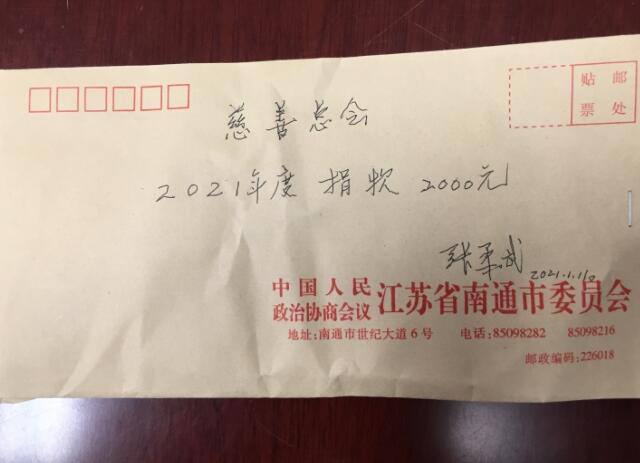 贴 邮
票 处
慈善总会
2021年度 捐款 2000元
2021.1.10
中国人民
政治协商会议 江苏省南通市委员会
地址:南通市世纪大道6号 电话:85098282 85098216
邮政编码:226018